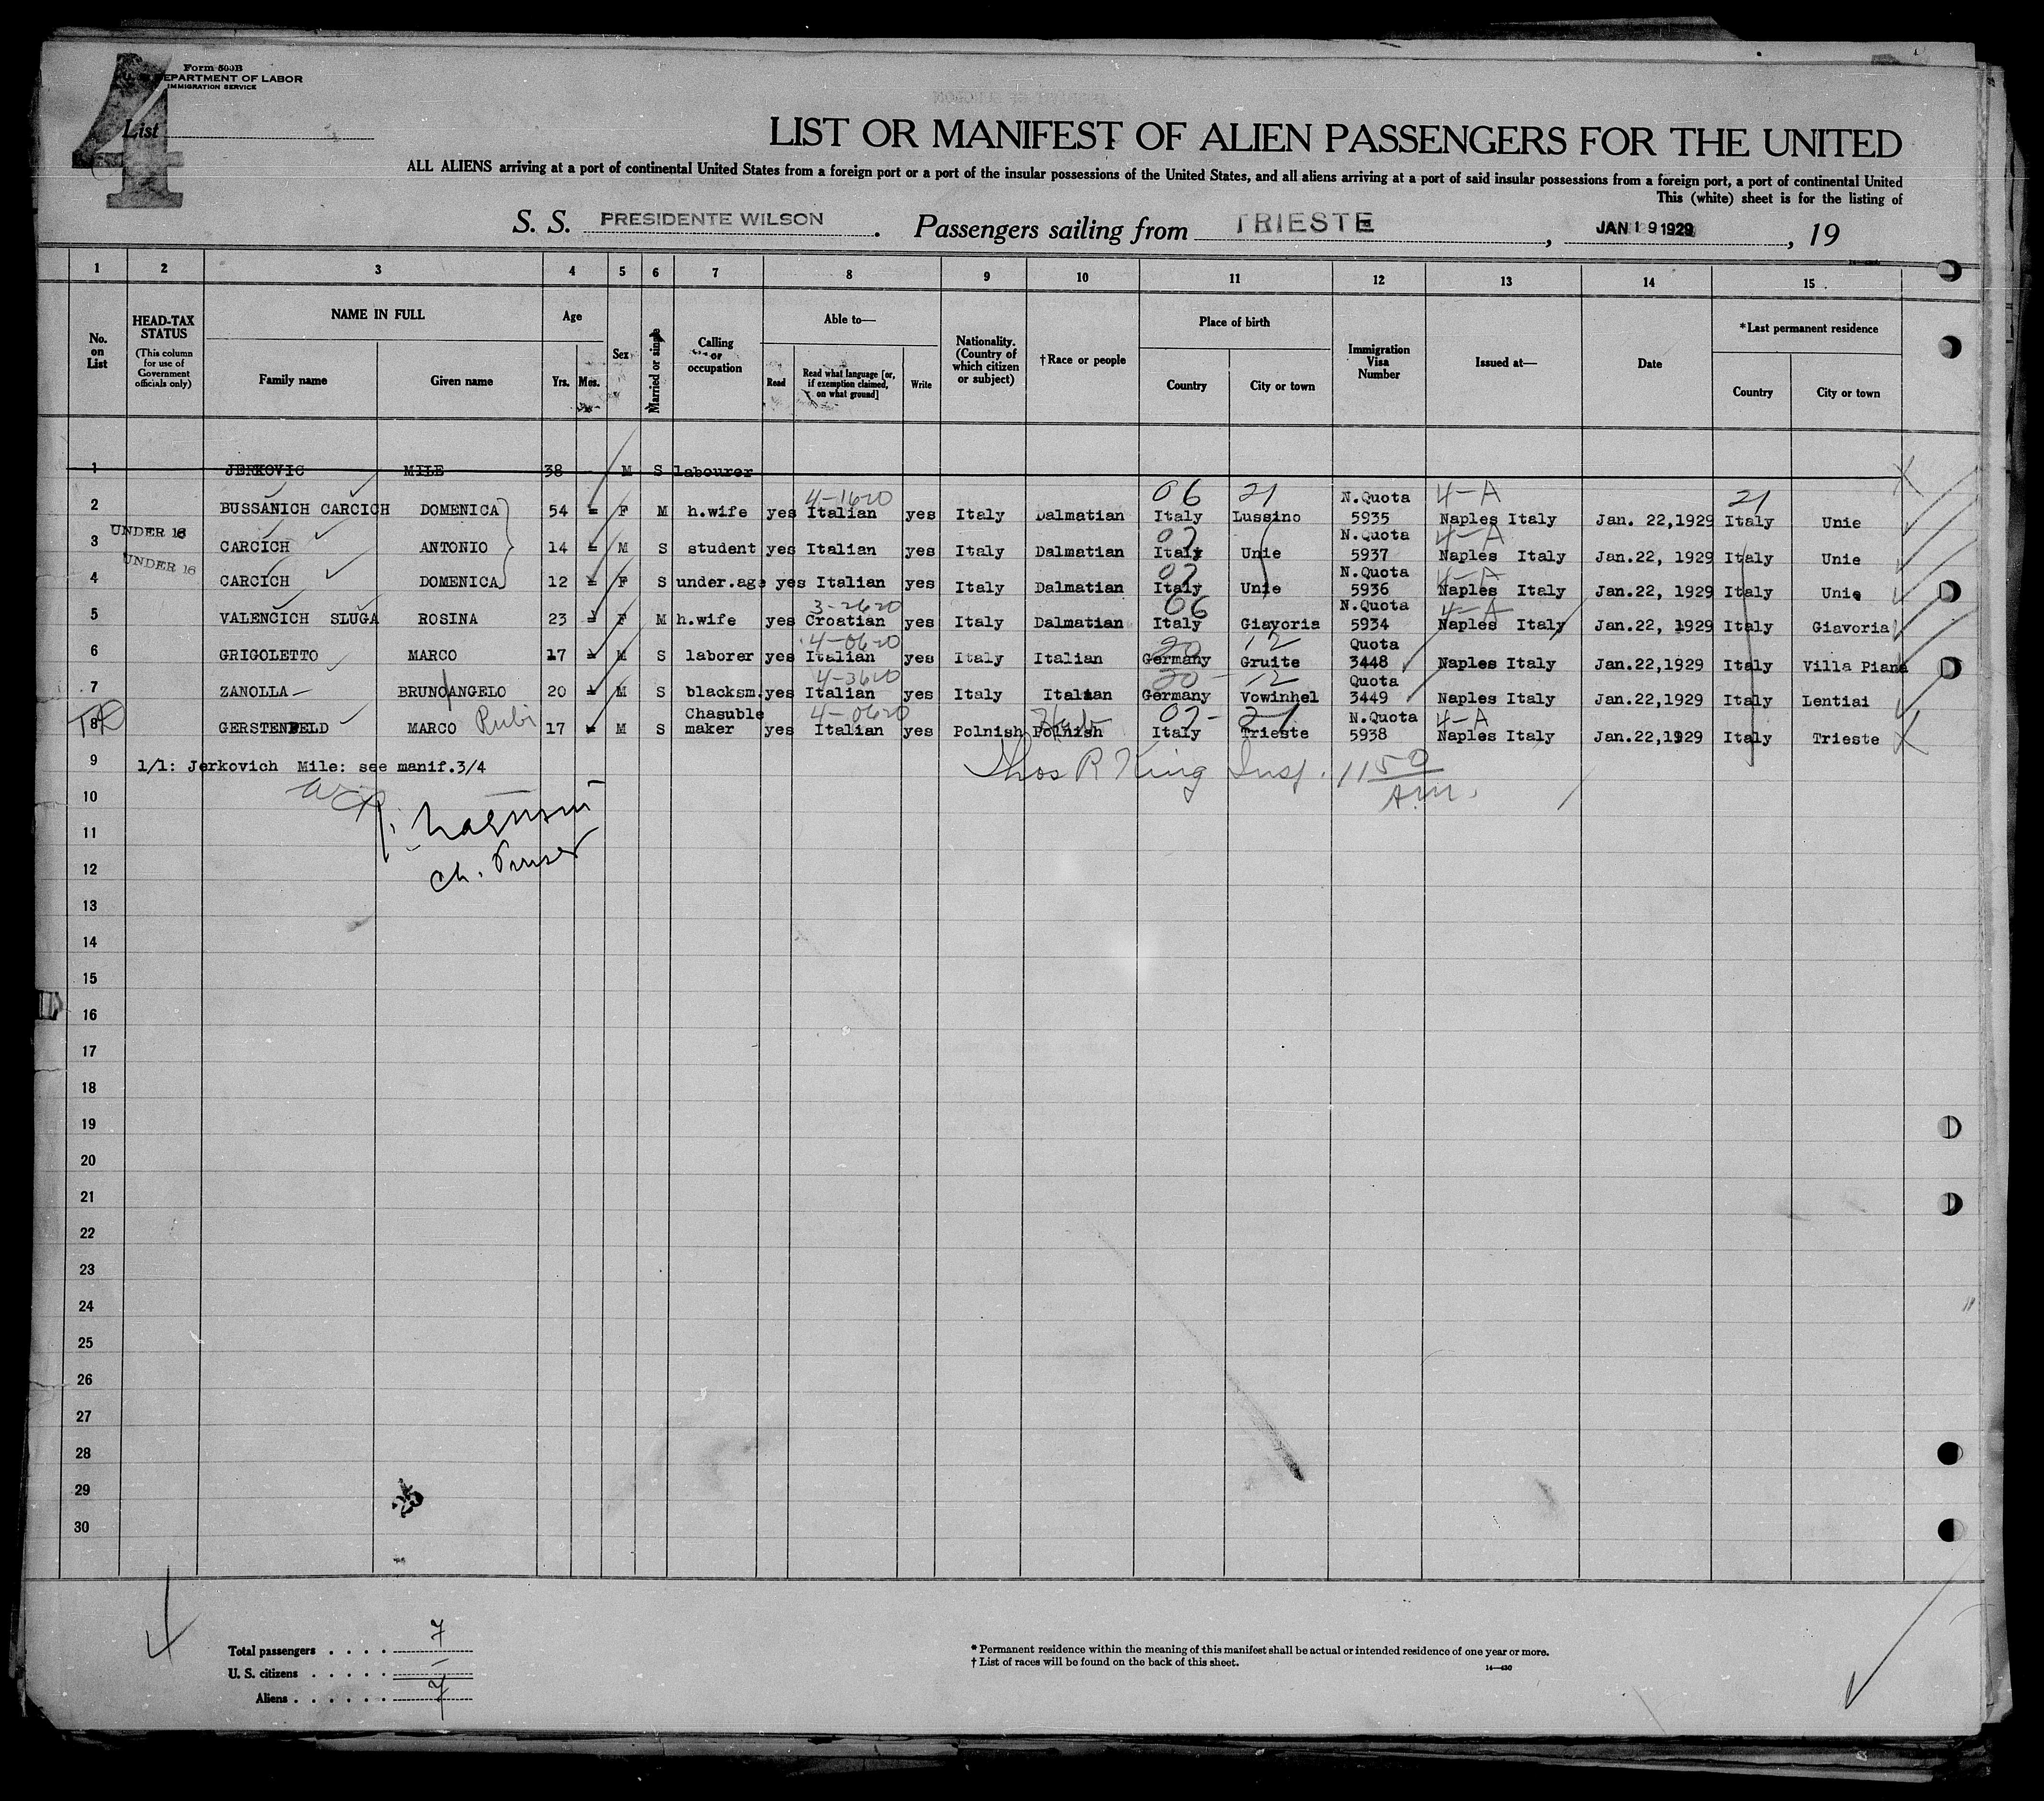 Form 500B
U. S. DEPARTMENT OF LABOR
IMMIGRATION SERVICE
4
List
LIST OR MANIFEST OF ALIEN PASSENGERS FOR THE UNITED
ALL ALIENS arriving at a port of continental United States from a foreign port or a port of the insular possessions of the United States, and all aliens arriving at a port of said insular possessions from a foreign port, a port of continental United
This (white) sheet is for the listing of
S. S. PRESIDENTE WILSON. Passengers sailing from TRIESTE, JAN 19 1929, 19
1 2 3 4 5 6 7 8 9 10 11 12 13 14 15
No. on List
HEAD-TAX STATUS (This column for use of Government officials only)
NAME IN FULL
Family name Given name
Age
Yrs. Mos.
Sex
Married or single
Calling or occupation
Able to—
Read
Read what language [or, if exemption claimed, on what ground]
Write
Nationality. (Country of which citizen or subject)
†Race or people
Place of birth
Country City or town
Immigration Visa Number
Issued at—
Date
*Last permanent residence
Country City or town
1 JERKOVIC MILE 38 M S labourer
4-1620 06 21 N.Quota 4-A 21
2 BUSSANICH CARCICH DOMENICA 54 - F M h.wife yes Italian yes Italy Dalmatian Italy Lussino 5935 Naples Italy Jan. 22,1929 Italy Unie
UNDER 16 N.Quota 4-A
3 CARCICH ANTONIO 14 - M S student yes Italian yes Italy Dalmatian Italy Unie 5937 Naples Italy Jan.22, 1929 Italy Unie
UNDER 16 N.Quota 4-A
4 CARCICH DOMENICA 12 - F S under.age yes Italian yes Italy Dalmatian Italy Unie 5936 Naples Italy Jan.22, 1929 Italy Unie
3-2620 06 N.Quota 4-A
5 VALENCICH SLUGA ROSINA 23 - F M h.wife yes Croatian yes Italy Dalmatian Italy Giavoria 5934 Naples Italy Jan.22, 1929 Italy Giavoria
4-0620 20 12 Quota
6 GRIGOLETTO MARCO 17 - M S laborer yes Italian yes Italy Italian Germany Gruite 3448 Naples Italy Jan.22,1929 Italy Villa Piana
4-3620 20 - 12 Quota
7 ZANOLLA BRUNOANGELO 20 - M S blacksm. yes Italian yes Italy Italian Germany Vowinhel 3449 Naples Italy Jan.22,1929 Italy Lentiai
Chasuble 4-0620 Heb N.Quota 4-A
8 GERSTENFELD MARCO Rubi 17 - M S maker yes Italian yes Polnish Polnish Italy Trieste 5938 Naples Italy Jan.22,1929 Italy Trieste
9 1/1: Jerkovich Mile: see manif.3/4 Thos R King Insp. 1150 AM.
10
11
12 Ch. Purser
13
14
15
16
17
18
19
20
21
22
23
24
25
26
27
28
29 25
30
Total passengers . . . . 7
U. S. citizens . . . . . -
Aliens . . . . . . 7
* Permanent residence within the meaning of this manifest shall be actual or intended residence of one year or more.
† List of races will be found on the back of this sheet.
14—430